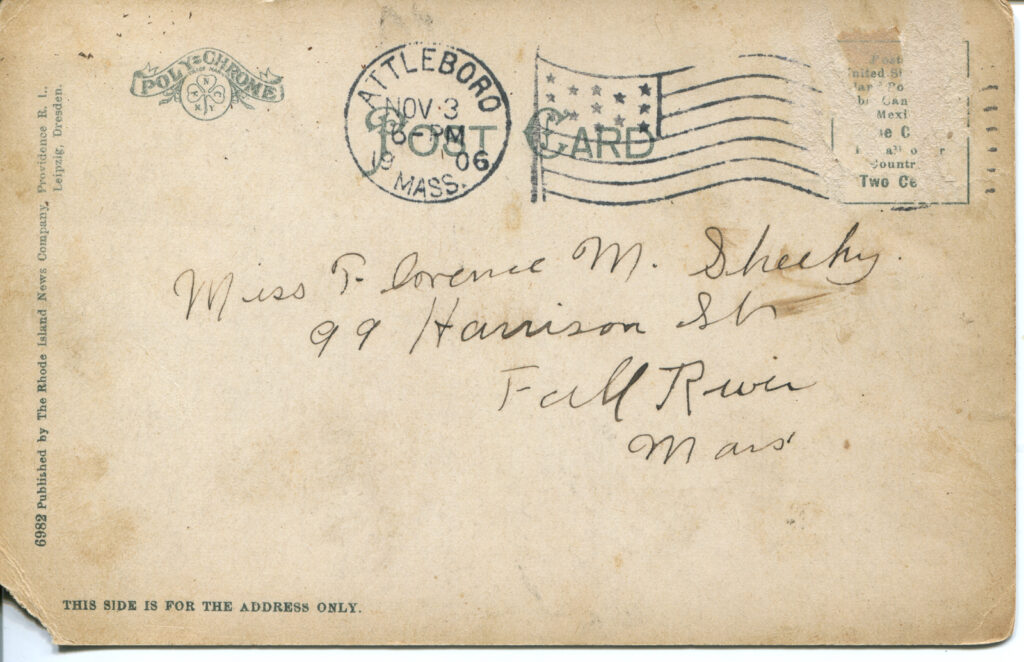 POLY-CHROME
ATTLEBORO
NOV 3
6-PM
19 06
MASS.
POST CARD
Two Ce
Miss Florence M. Sheehy.
99 Harrison St
Fall River
Mass
6982 Published by The Rhode Island News Company, Providence R. I..
Leipzig, Dresden.
THIS SIDE IS FOR THE ADDRESS ONLY.